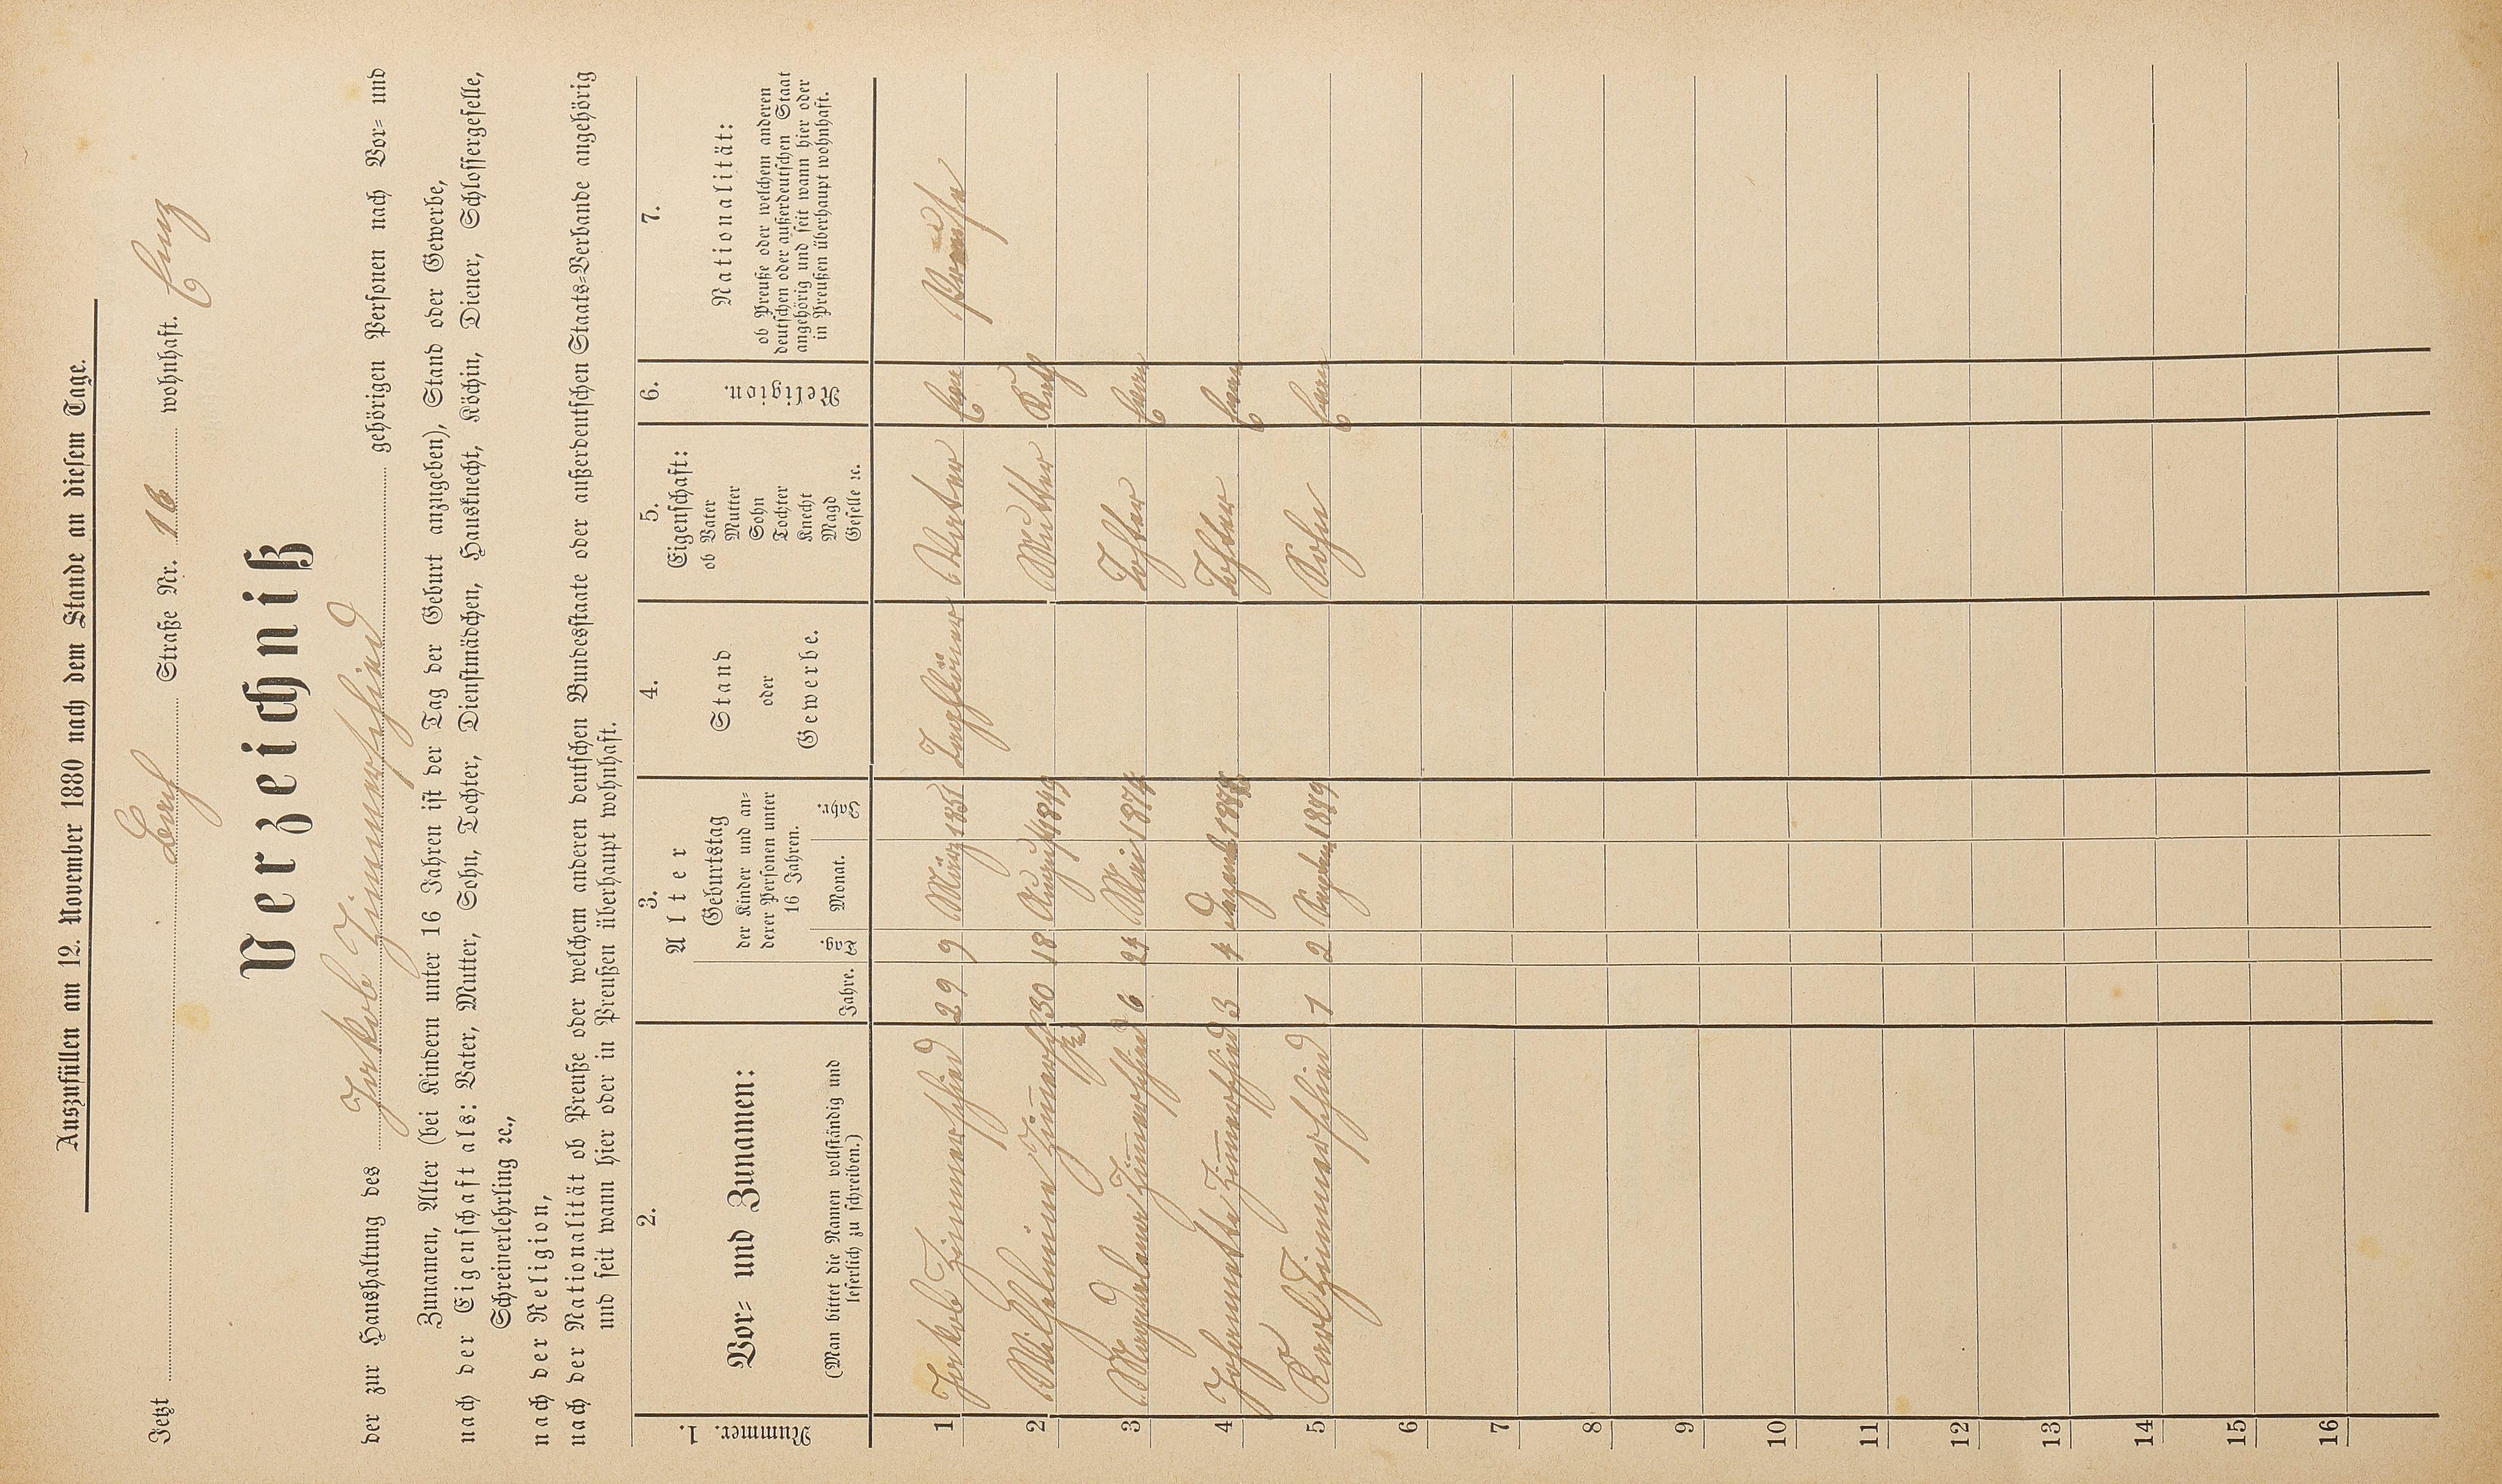 Auszufüllen am 12. November 1880 nach dem Stande an diesem Tage.
Jetzt Bach Straße Nr. 16 wohnhaft. Emz
Verzeichniß
der zur Haushaltung des Jakob Zimmerschied gehörigen Personen nach Vor- und
Zunamen, Alter (bei Kindern unter 16 Jahren ist der Tag der Geburt anzugeben), Stand oder Gewerbe,
nach der Eigenschaft als: Vater, Mutter, Sohn, Tochter, Dienstmädchen, Hausknecht, Köchin, Diener, Schlossergeselle,
Schreinerlehrling ꝛc.,
nach der Religion,
nach der Nationalität ob Preuße oder welchem anderen deutschen Bundesstaate oder außerdeutschen Staats-Verbande angehörig
und seit wann hier oder in Preußen überhaupt wohnhaft.
1.
Nummer.
2.
Vor- und Zunamen:
(Man bittet die Namen vollständig und
leserlich zu schreiben.)
3.
Alter
Jahre.
Geburtstag
der Kinder und an-
derer Personen unter
16 Jahren.
Tag. Monat. Jahr.
4.
Stand
oder
Gewerbe.
5.
Eigenschaft:
ob Vater
Mutter
Sohn
Tochter
Knecht
Magd
Geselle ꝛc.
6.
Religion.
7.
Nationalität:
ob Preuße oder welchem anderen
deutschen oder außerdeutschen Staat
angehörig und seit wann hier oder
in Preußen überhaupt wohnhaft.
1 Jakob Zimmerschied 29 9 März 1851 Taglöhner Vater Evan Preusse
2 Wilhelmine Zim̅ersch 30 18 August 1849 Mutter Kath
ied
3 Magdalena Zim̅erschied 6 24 Mai 1874 Tochter Evan
4 Johannette Zim̅erschied 3 4 Dezemb Tochter Evan
5 Karl Zimmerschied 1 2 Septem 1879 Sohn Evan
6
7
8
9
10
11
12
13
14
15
16